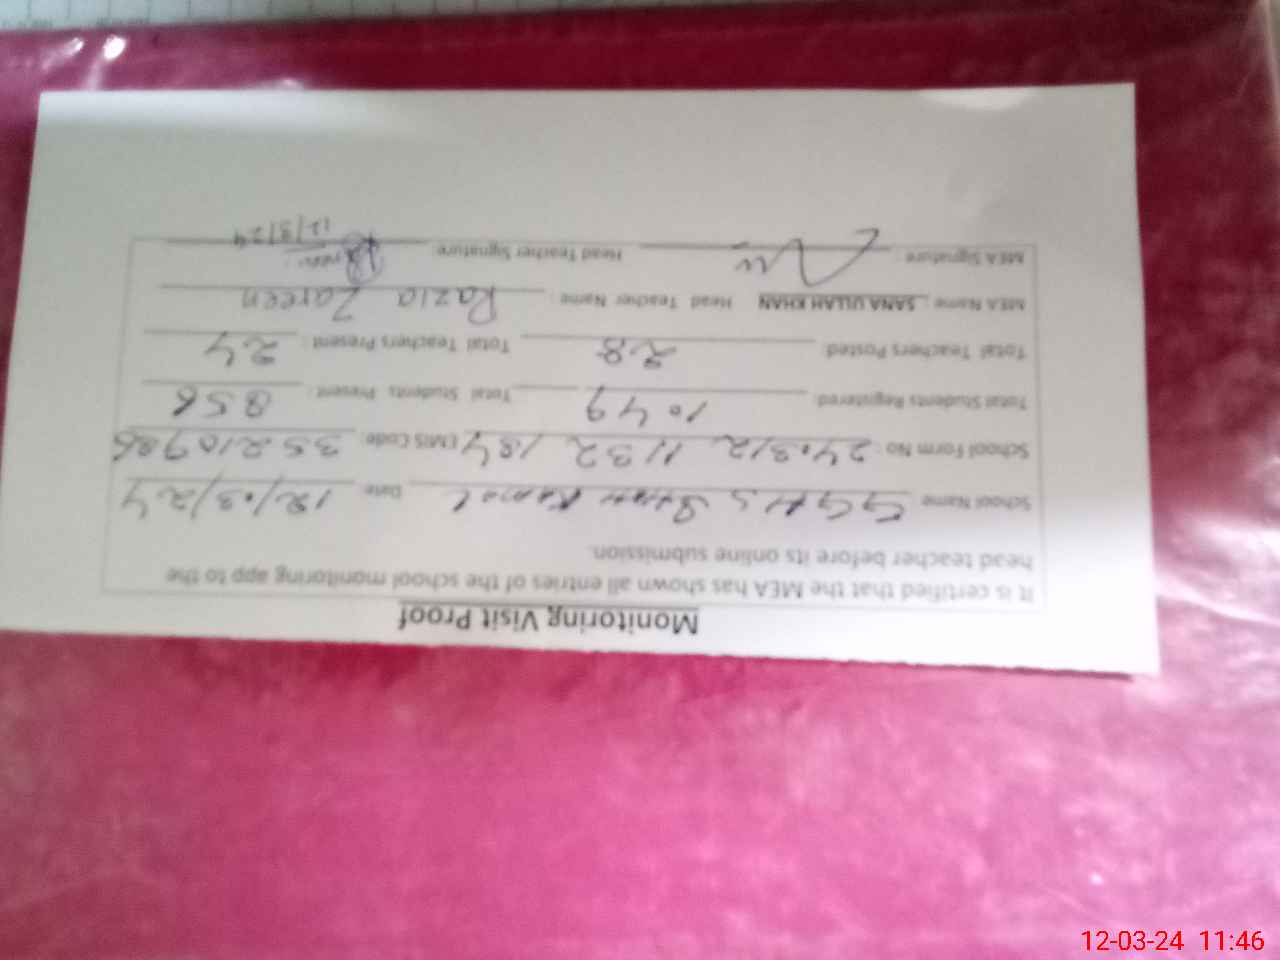 Monitoring Visit Proof
It is certified that the MEA has shown all entries of the school monitoring app to the
head teacher before its online submission.
School Name GGHS Kamal Date 12/03/24
School Form No: 2403/2 1132 184 EMIS Code: 35210
Total Students Registered 1049 Total Students Present: 856
Total Teachers Posted: 28 Total Teachers Present: 24
MEA Name: SANA ULLAH KHAN Head Teacher Name: Razia Zareen
MEA Signature: Head Teacher Signature:
12/3/24
12-03-24 11:46